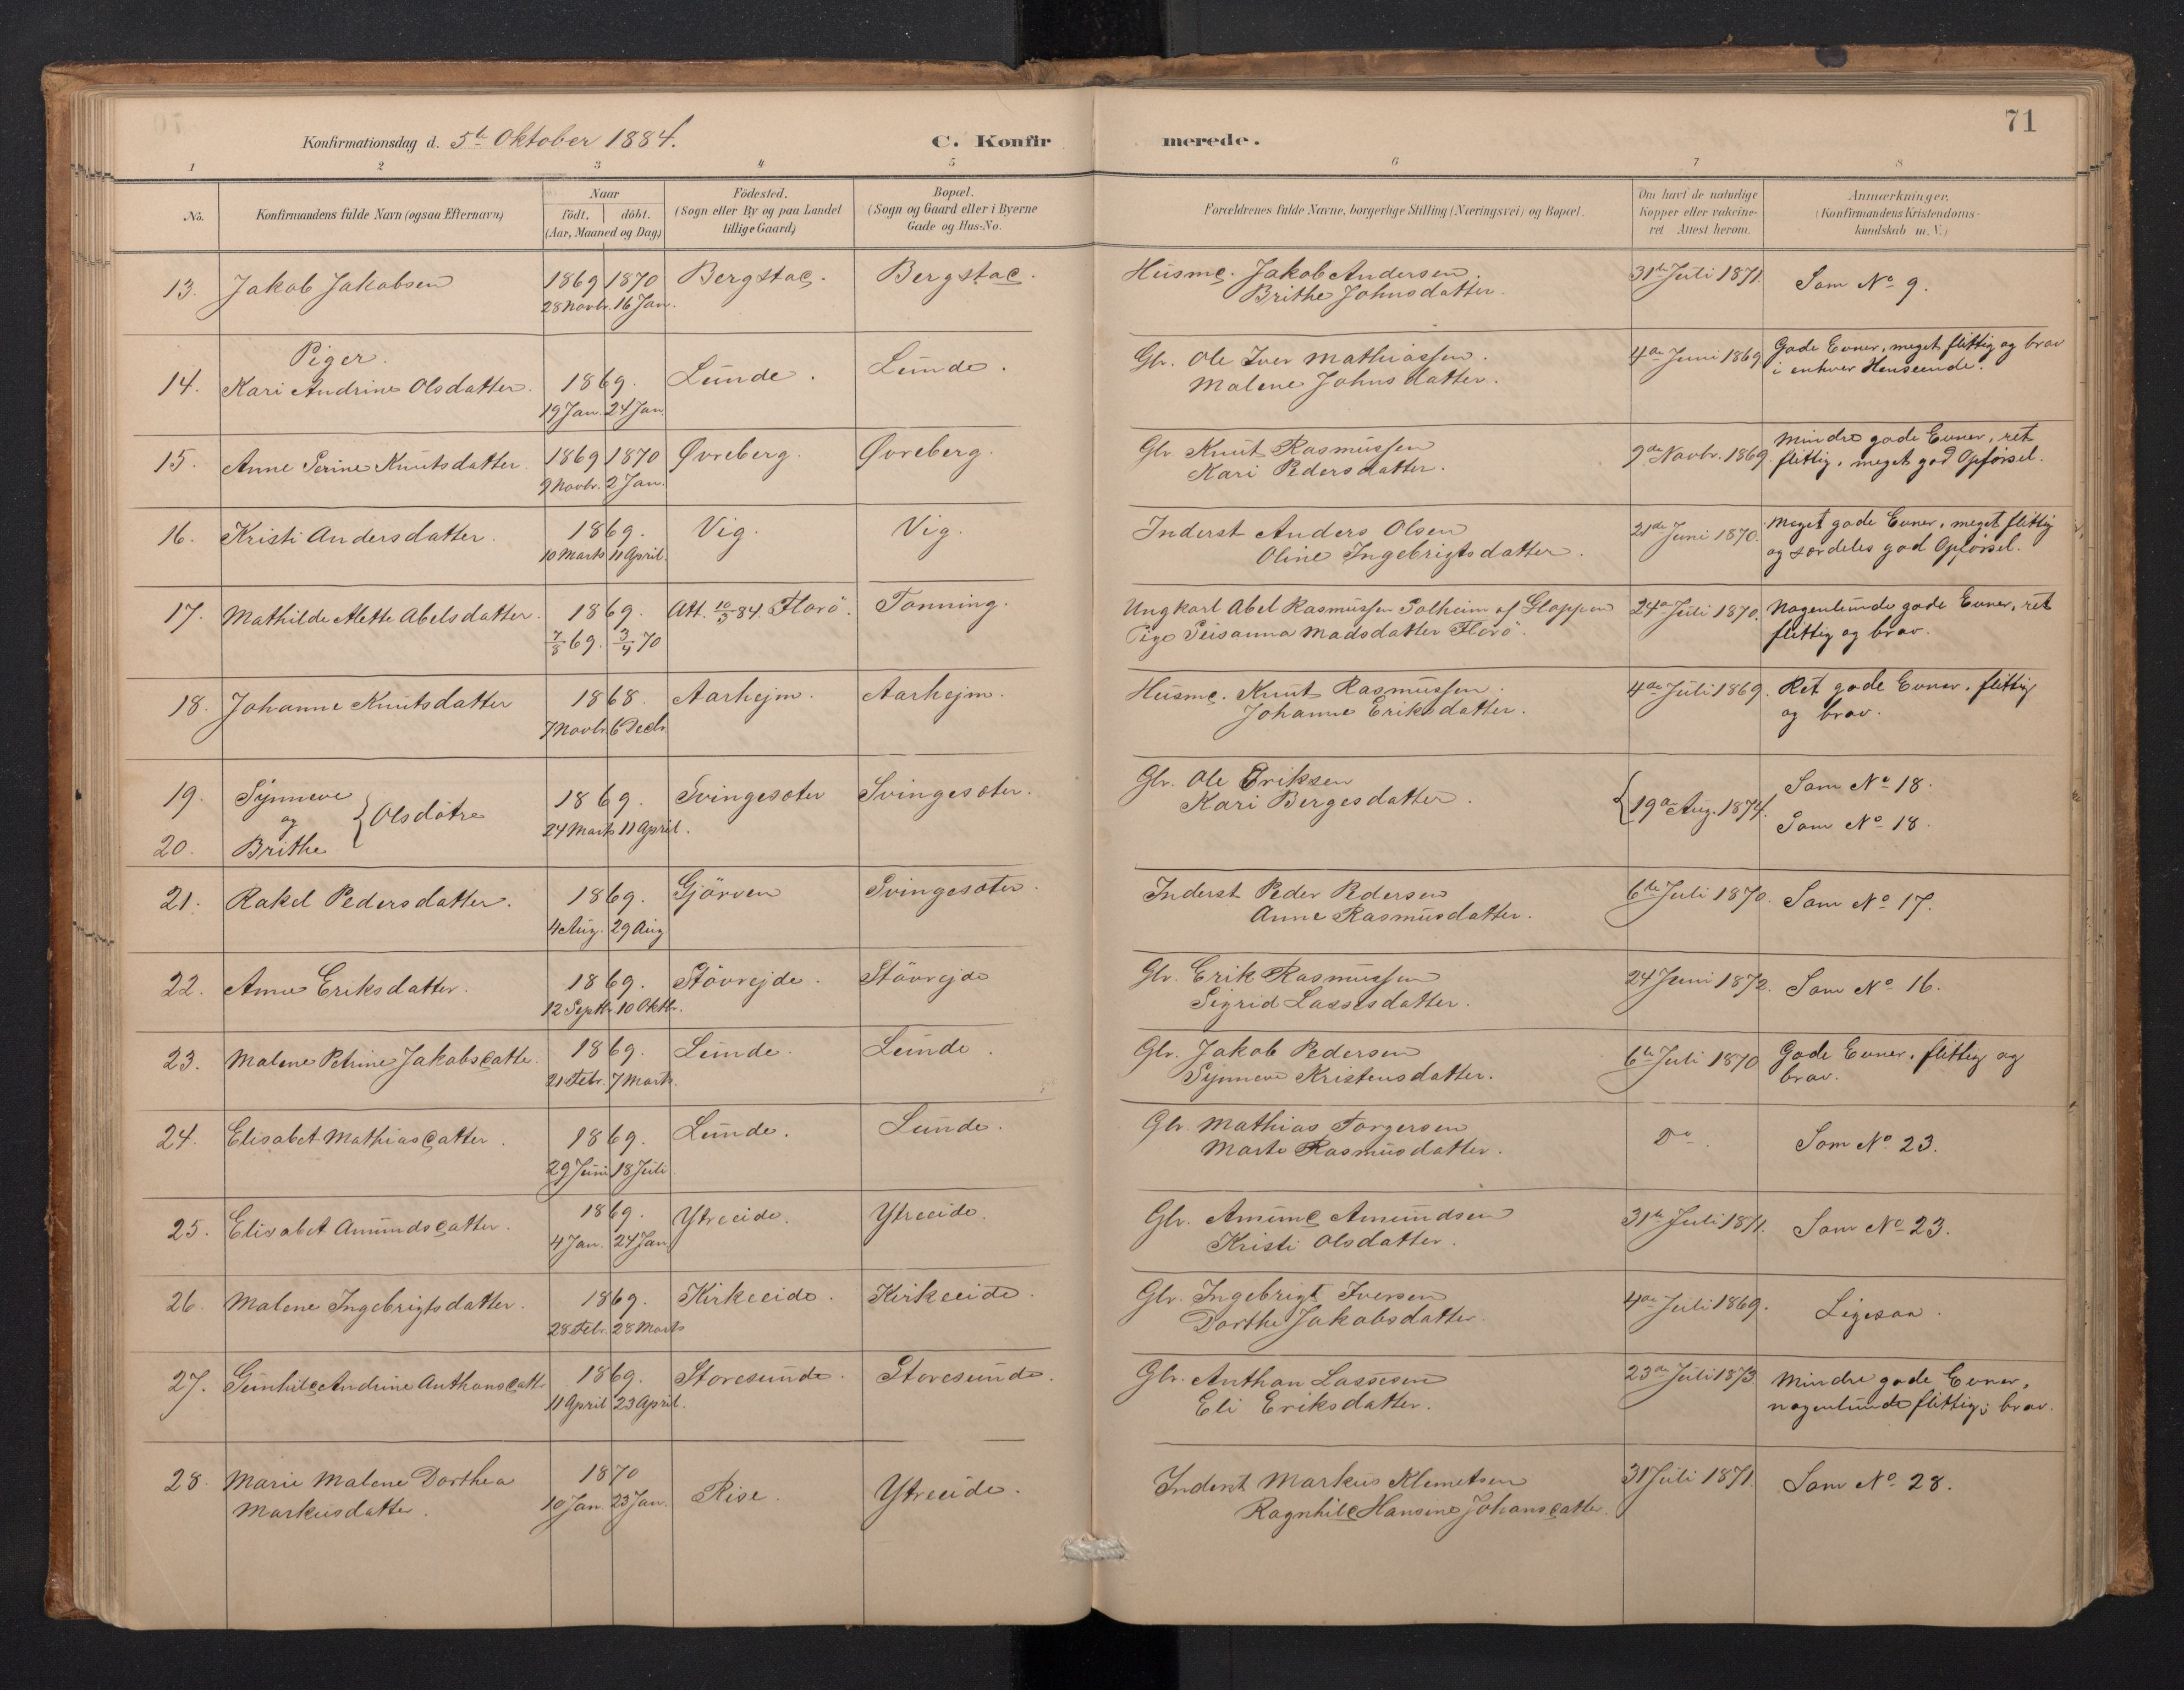 71
Konfirmationsdag d. 5te Oktober 1884. C. Konfirmerede.
1 2 3 4 5 6 7 8
No. Konfirmandens fulde Navn (ogsaa Efternavn) Naar födt. döbt. (Aar, Maaned og Dag) Födested. (Sogn eller By og paa Landet tillige Gaard) Bopæl. (Sogn og Gaard eller i Byerne Gade og Hus-No. Forældrenes fulde Navne, borgerlige Stilling (Næringsvei) og Bopæl. Om havt de naturlige Kopper eller vakcineret Attest herom. Anmærkninger. (Konfirmandens Kristendomskundskab m. V.)
13. Jakob Jakobsen 1869 1870 Bergstad. Bergstad. Husmd. Jakob Andersen. 31te Juli 1871. Som No 9.
28 Novbr. 16 Jan. Brithe Johnsdatter.
Piger.
14. Kari Andrine Olsdatter. 1869. Lunde. Lunde. Gbr. Ole Iver Mathiassen. 4de Juni 1869 Gode Evner, meget flittig og brav
19 Jan. 24 Jan. Malene Johnsdatter. i enhver Henseende.
15. Anne Serine Knutsdatter. 1869 1870 Øvreberg. Øvreberg. Gbr Knut Rasmussen 9de Novbr. 1869. Mindre gode Evner, ret
9 Novbr. 2 Jan. Kari Pedersdatter. flittig, meget god Opførsel.
16. Kristi Andersdatter. 1869. Vig. Vig. Inderst Anders Olsen 21de Juni 1870. Meget gode Evner, meget flittig
10 Marts 11 April. Oline Ingebrigtsdatter. og særdeles god Opførsel.
17. Mathilde Alette Abelsdatter. 1869. Att. 10/3 84. Florö. Tonning. Ungkarl Abel Rasmussen Solheim af Gloppen 24de Juli 1870. Nogenlunde gode Evner, ret
7/8 69. 3/4 70 Pige Susanna Madsdatter Florö. flittig og brav.
18. Johanne Knutsdatter 1868. Aarhejm. Aarhejm. Husmd. Knut Rasmussen. 4de Juli 1869. Ret gode Evner, flittig
7 Novbr. 6 Decbr. Johanne Eriksdatter. og brav.
19. Synneve 1869. Svingesæter Svingesæter. Gbr. Ole Eriksen Som No 18.
og { Olsdötre 24 Marts 11 April. Kari Bergesdatter. { 19de Aug. 1874.
20. Brithe Som No 18.
21. Rakel Pedersdatter. 1869. Gjörven Svingesæter. Inderst Peder Pedersen 6te Juli 1870. Som No 17.
4 Aug. 29 Aug Anne Rasmusdatter.
22. Anne Eriksdatter. 1869. Stövrejde. Stövrejde Gbr. Erik Rasmussen 24 Juni 1872. Som No 16.
12 Septbr. 10 Oktbr. Sigrid Lassesdatter.
23. Malene Petrine Jakobsdatte. 1869. Lunde. Lunde. Gbr. Jakob Pedersen 6te Juli 1870 Gode Evner, flittig og
21 Febr. 7 Marts. Synneve Kristensdatter. brav.
24. Elisabet Mathiasdatter. 1869. Lunde. Lunde. Gbr. Mathias Torgersen Do. Som No 23.
29 Juni 18 Juli Marte Rasmusdatter.
25. Elisabet Amundsdatter. 1869. Ytreeide. Ytreeide. Gbr. Amund Amundsen 31te Juli 1871. Som No 23.
4 Jan. 24 Jan. Kristi Olsdatter.
26. Malene Ingebrigtsdatter. 1869. Kirkeeide. Kirkeeide. Gbr. Ingebrigt Iversen 4de Juli 1869. Ligesaa.
28 Febr. 28 Marts Dorthe Jakobsdatter.
27. Gunhild Andrine Anthonsdatt. 1869. Storesunde. Storesunde. Gbr. Anthon Lassesen 23de Juli 1873. Mindre gode Evner,
11 April 23 April. Eli Eriksdatter. nogenlunde flittig; brav.
28. Marie Malene Dorthea 1870 Rise. Ytreeide. Inderst Markus Klemetsen 31 Juli 1871. Som No 28.
Markusdatter. 10 Jan. 23 Jan. Ragnhild Hansine Johansdatter.